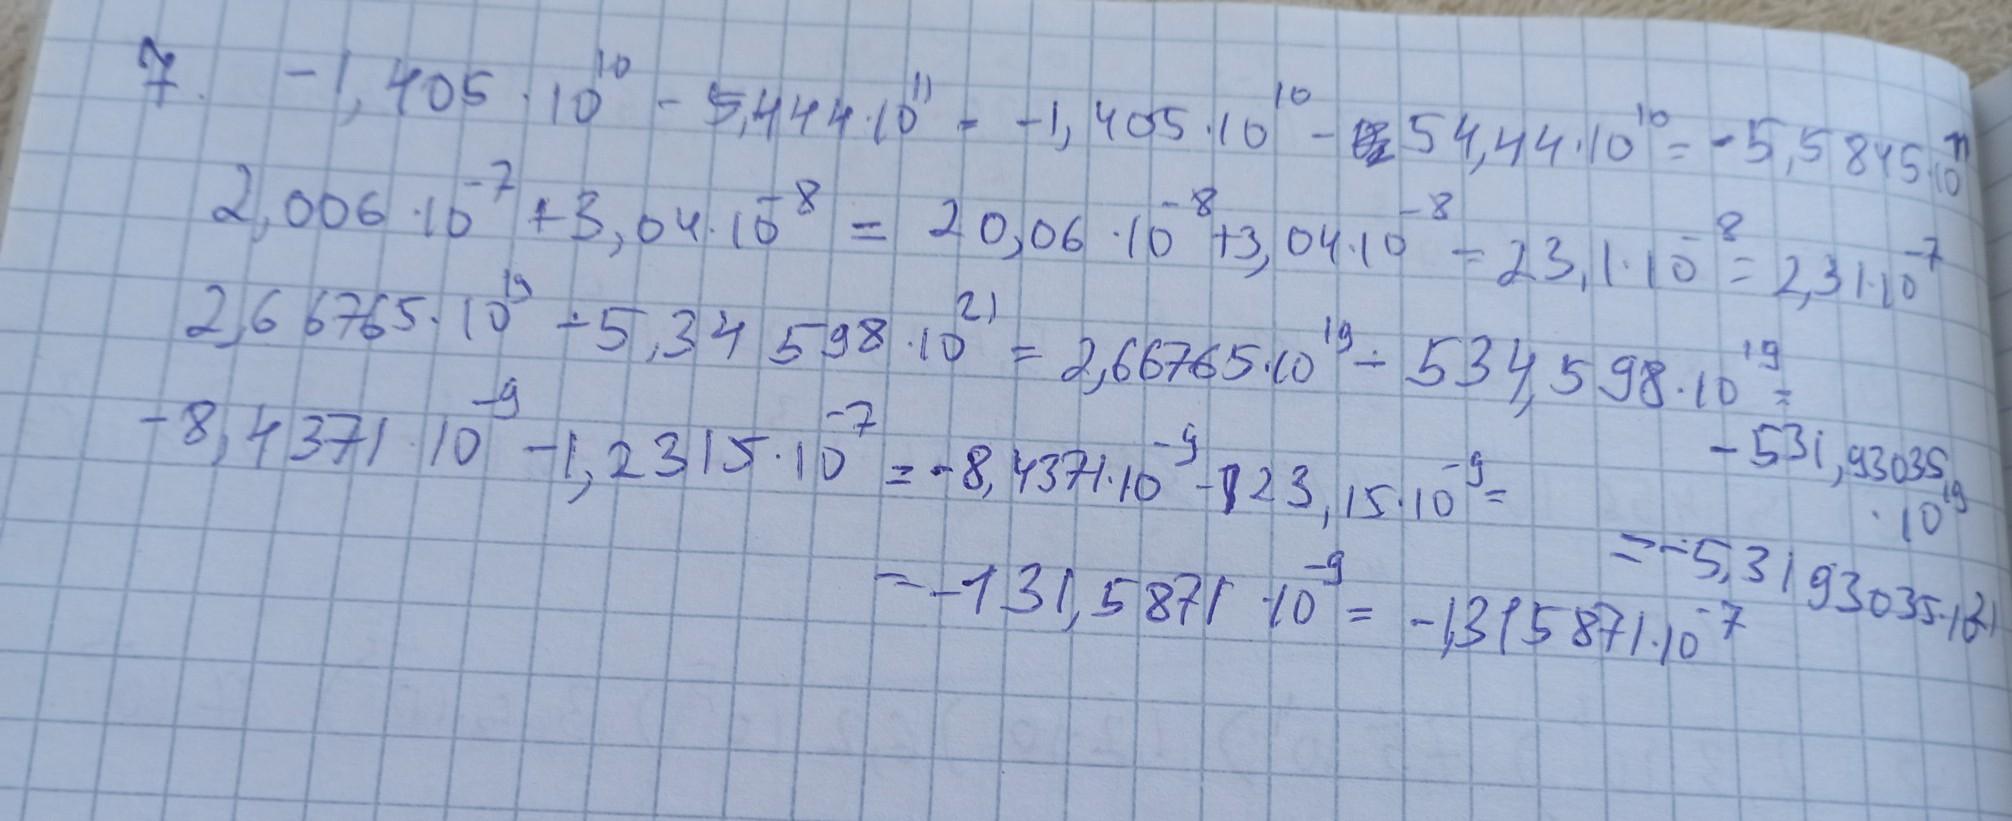 7. -1,405·10¹⁰ - 5,444·10¹¹ = -1,405·10¹⁰ - 54,44·10¹⁰ = -5,5845·10¹¹
2,006·10⁻⁷ + 3,04·10⁻⁸ = 20,06·10⁻⁸ + 3,04·10⁻⁸ = 23,1·10⁻⁸ = 2,31·10⁻⁷
2,66765·10¹⁹ - 5,34598·10²¹ = 2,66765·10¹⁹ - 534,598·10¹⁹ =
-531,93035
·10¹⁹
= -5,3193035·10²¹
-8,4371·10⁻⁹ - 1,2315·10⁻⁷ = -8,4371·10⁻⁹ - 123,15·10⁻⁹ =
= -131,5871·10⁻⁹ = -1,315871·10⁻⁷